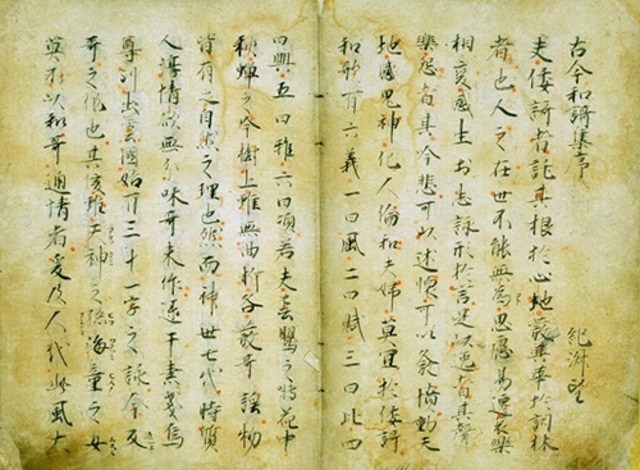 古今和謌集序
紀淑望
夫倭謌者託其根於心地發其華於詞林
者也人之在世不能無為思慮易遷哀樂
相變感生於志詠形於言是以逸者其聲
樂怨者其吟悲可以述懷可以發憤動天
地感鬼神化人倫和夫婦莫宜於倭謌
和歌有六義一曰風二曰賦三曰比四
曰興五曰雅六曰頌若夫春鶯之囀花中
秋蟬之吟樹上雖無曲折各發哥謠物
皆有之自然之理也然而神世七代時質
人淳情欲無分咊哥未作逮于素戔烏
尊到出雲國始有三十一字之詠今反
哥之作也其後雖天神之孫海童之女
莫不以和哥通情者爰及人代此風大